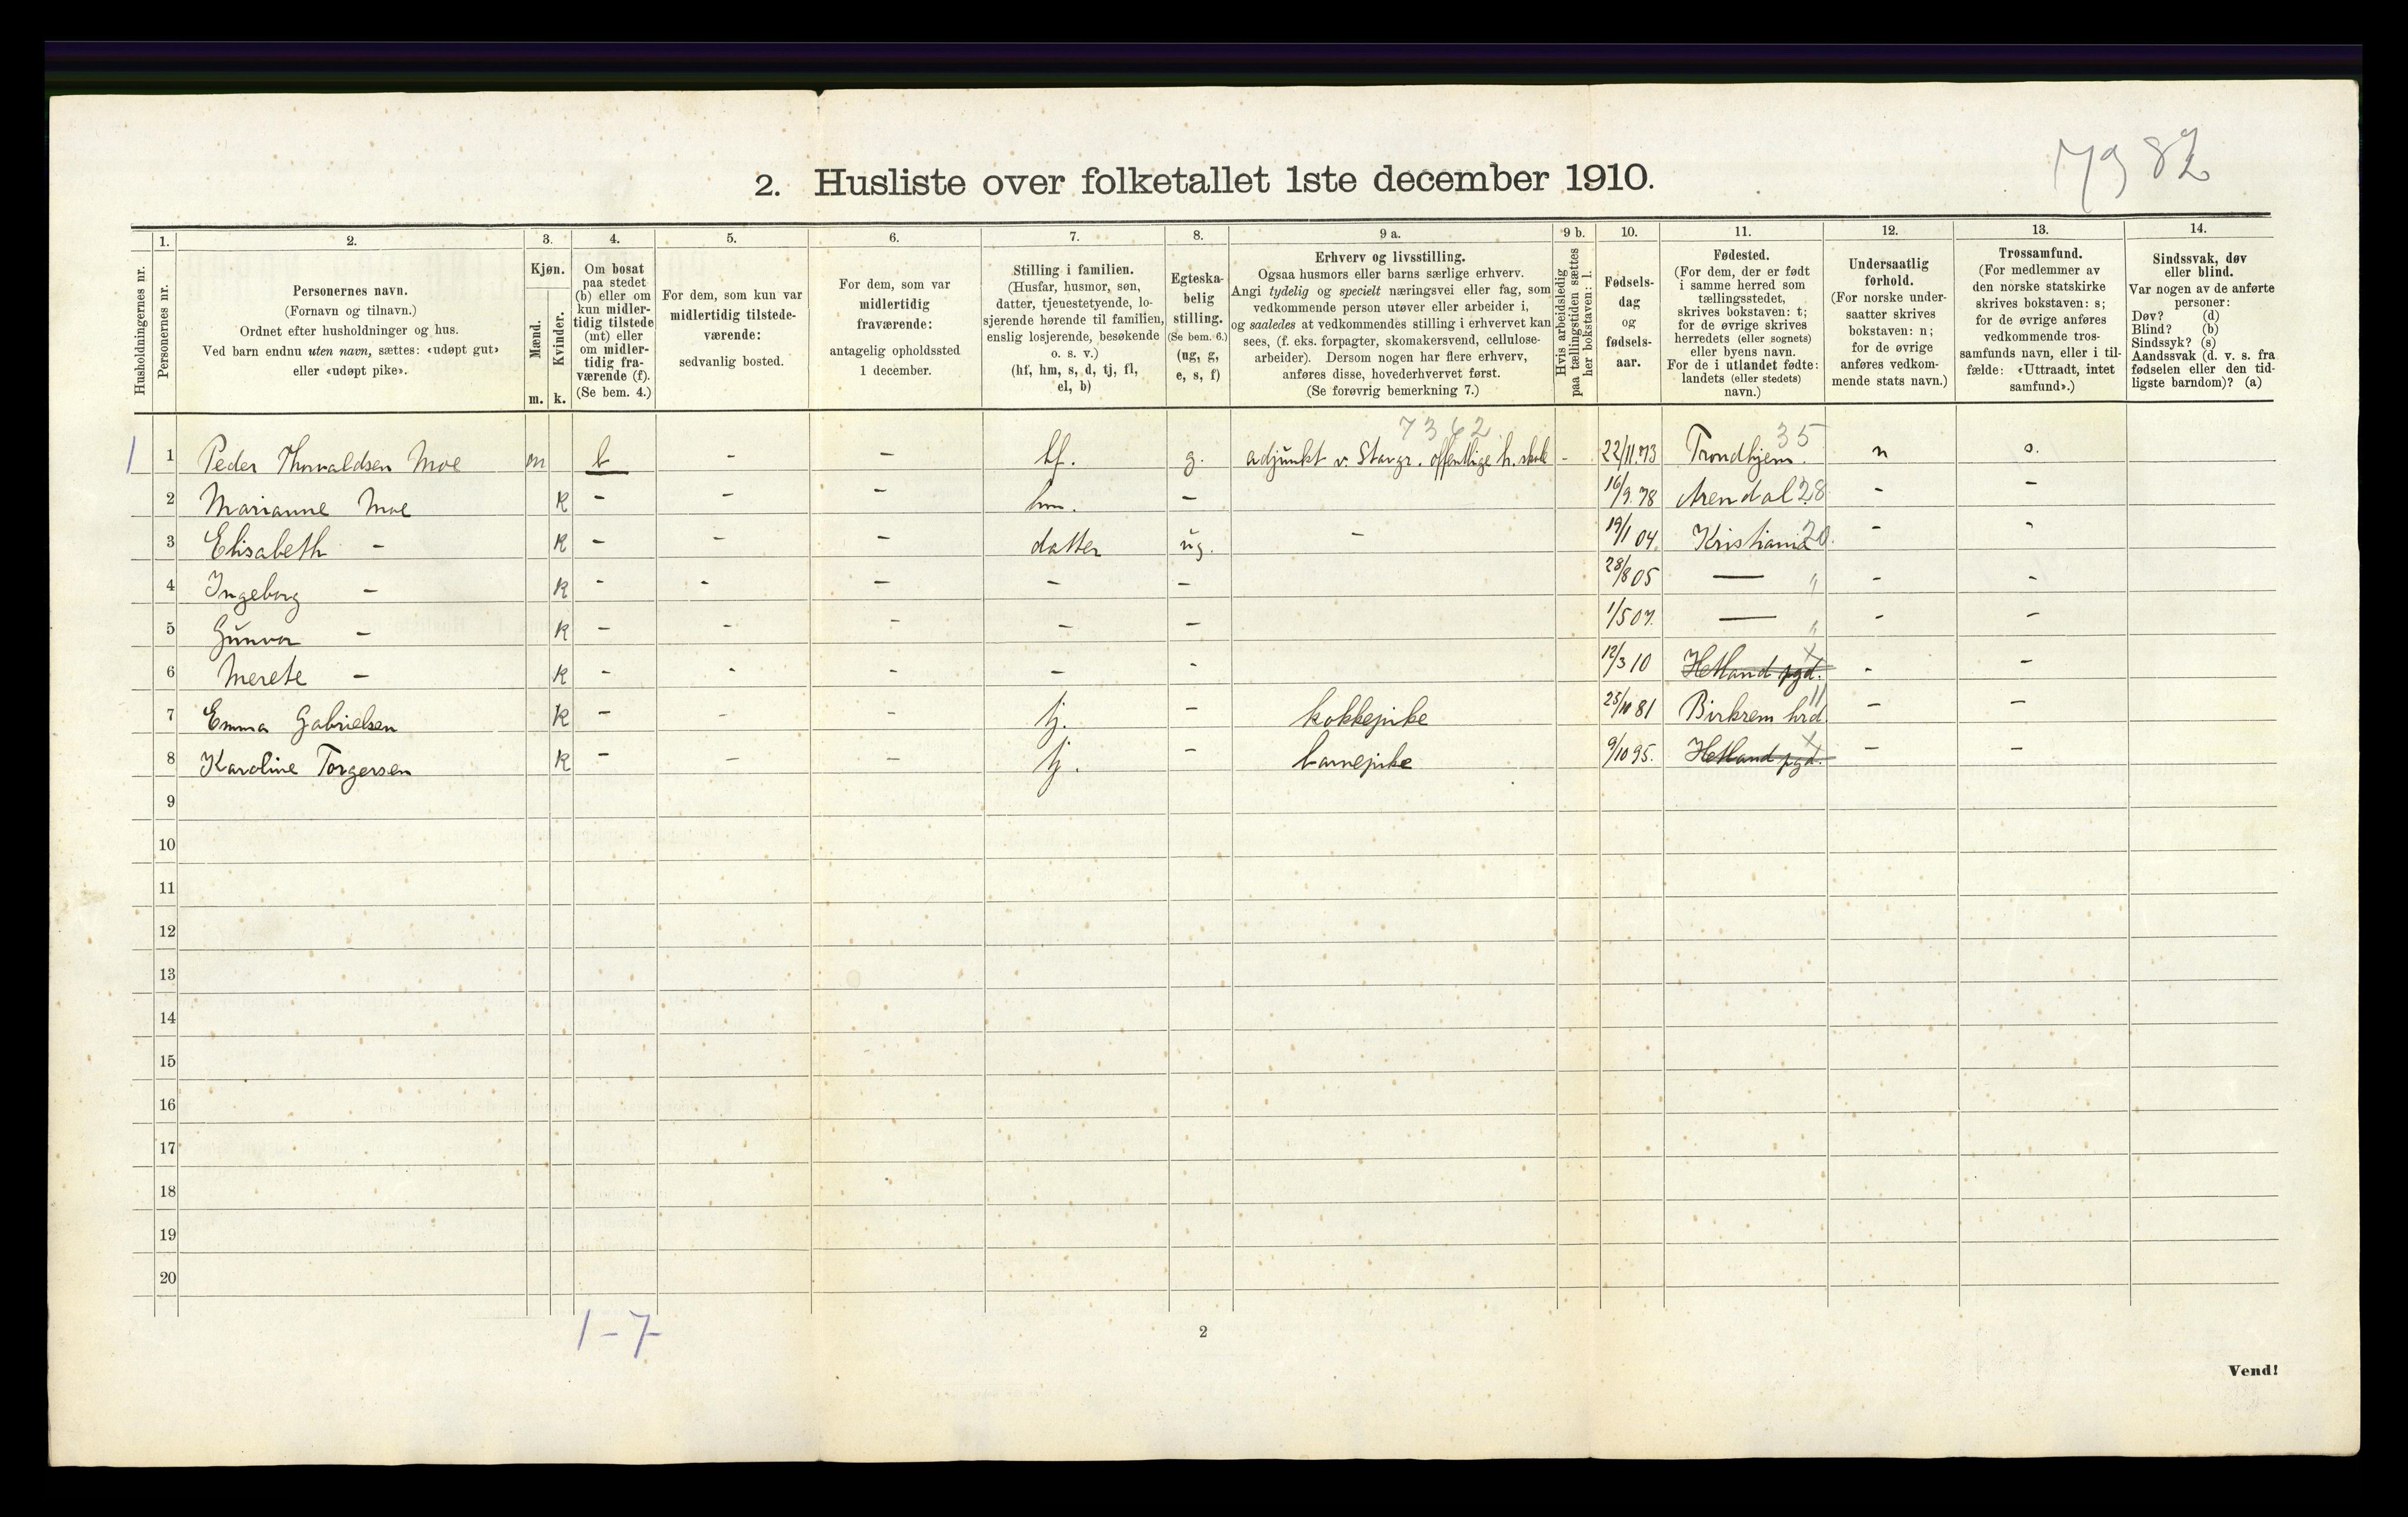 7982
2. Husliste over folketallet 1ste december 1910.
Husholdningernes nr.
1.
Personernes nr.
2.
Personernes navn.
(Fornavn og tilnavn.)
Ordnet efter husholdninger og hus.
Ved barn endnu uten navn, sættes: «udøpt gut»
eller «udøpt pike».
3.
Kjøn.
Mænd.
m.
Kvinder.
k.
4.
Om bosat
paa stedet
(b) eller om
kun midler-
tidig tilstede
(mt) eller
om midler-
tidig fra-
værende (f).
(Se bem. 4.)
5.
For dem, som kun var
midlertidig tilstede-
værende:
sedvanlig bosted.
6.
For dem, som var
midlertidig
fraværende:
antagelig opholdssted
1 december.
7.
Stilling i familien.
(Husfar, husmor, søn,
datter, tjenestetyende, lo-
sjerende hørende til familien,
enslig losjerende, besøkende
o. s. v.)
(hf, hm, s, d, tj, fl,
el, b)
8.
Egteska-
belig
stilling.
(Se bem. 6.)
(ug, g,
e, s, f)
9 a.
Erhverv og livsstilling.
Ogsaa husmors eller barns særlige erhverv.
Angi tydelig og specielt næringsvei eller fag, som
vedkommende person utøver eller arbeider i,
og saaledes at vedkommendes stilling i erhvervet kan
sees, (f. eks. forpagter, skomakersvend, cellulose-
arbeider). Dersom nogen har flere erhverv,
anføres disse, hovederhvervet først.
(Se forøvrig bemerkning 7.)
9 b.
Hvis arbeidsledig
paa tællingstiden sættes
her bokstaven: l.
10.
Fødsels-
dag
og
fødsels-
aar.
11.
Fødested.
(For dem, der er født
i samme herred som
tællingsstedet,
skrives bokstaven: t;
for de øvrige skrives
herredets (eller sognets)
eller byens navn.
For de i utlandet fødte:
landets (eller stedets)
navn.)
12.
Undersaatlig
forhold.
(For norske under-
saatter skrives
bokstaven: n;
for de øvrige
anføres vedkom-
mende stats navn.)
13.
Trossamfund.
(For medlemmer av
den norske statskirke
skrives bokstaven: s;
for de øvrige anføres
vedkommende tros-
samfunds navn, eller i til-
fælde: «Uttraadt, intet
samfund».)
14.
Sindssvak, døv
eller blind.
Var nogen av de anførte
personer:
Døv? (d)
Blind? (b)
Sindssyk? (s)
Aandssvak (d. v. s. fra
fødselen eller den tid-
ligste barndom)? (a)
7362 35
1 1 Peder Thorvaldsen Moe m b - - hf. g. adjunkt v. Stavgr. offentlige h. skole - 22/11.73 Trondhjem. n s.
2 Marianne Moe k - - - hm. - 16/9.78 Arendal 28 - -
3 Elisabeth - k - - - datter ug. - 19/1 04. Kristiania 20. - -
4 Ingeborg - k - - - - - 28/8 05 — " - -
5 Gunvor - k - - - - - 1/5 07. — " - -
6 Merete - k - - - - - 12/3 10 Hetland pgd. x - -
7 Emma Gabrielsen k - - - tj. - kokkepike 25/10 81 Birkrem hrd. 11 - -
8 Karoline Torgersen k - - - tj. - barnepike 9/10 95. Hetland pgd. x - -
9
10
11
12
13
14
15
16
17
18
19
20
1-7
2
Vend!